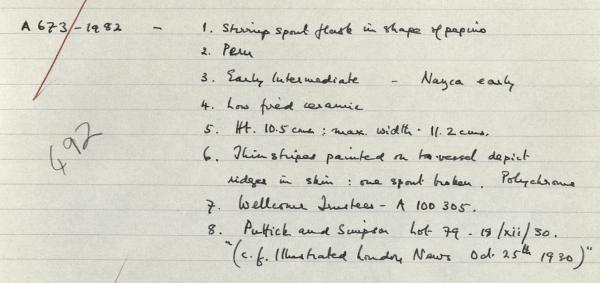 A 673-1982 - 1. Stirrup spout flask in shape of papino
2. Peru
3. Early Intermediate - Nazca early
4. Low fired ceramic
5. Ht. 10.5 cms; max. width - 11.2 cms.
6. Thin stripes painted on to vessel depict
ridges in skin : one spout broken. Polychrome
492
7. Wellcome Trustees - A 100 305.
8. Puttick and Simpson Lot 79 - 18/xii/30.
"(c.f. Illustrated London News Oct. 25th 1930)"